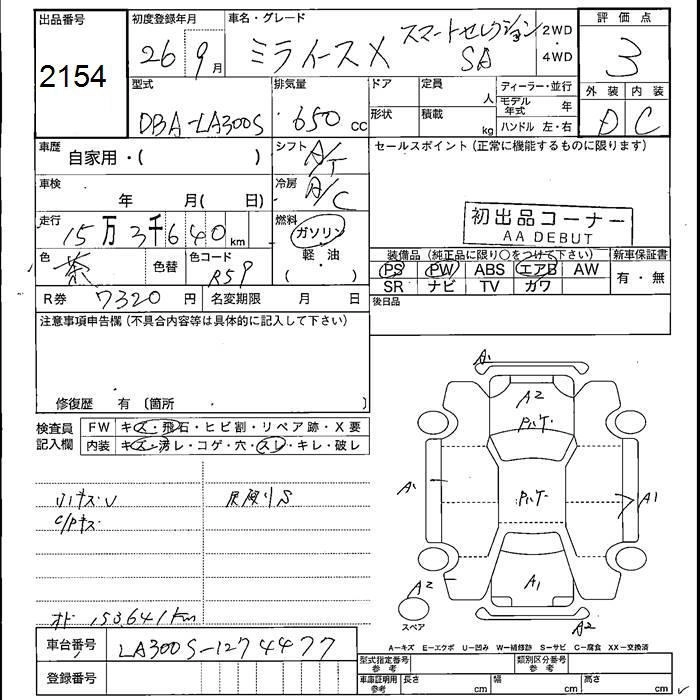 出品番号
2154
初度登録年月
26 9月
車名・グレード
ミライース X
スマートセレクション
SA
2WD
・
4WD
評価点
3
外装 内装
D C
型式
DBA-LA300S
排気量
650 cc
ドア
形状
定員
人
積載
kg
ディーラー・並行
モデル年式 年
ハンドル 左・右
車歴
自家用・( )
シフト
A/T
セールスポイント(正常に機能するものに限ります)
車検
年 月( 日)
冷房
A/C
初出品コーナー
AA DEBUT
走行
15万3千640km
燃料
ガソリン
軽・油
( )
色
茶
色替
色コード
R59
装備品(純正品に限り○をつけて下さい)
新車保証書
PS PW ABS エアB AW
SR ナビ TV カワ
有・無
R券 7320 円
名変期限 月 日
後日品
注意事項申告欄(不具合内容等は具体的に記入して下さい)
修復歴 有 〔箇所 〕
検査員
記入欄
FW キズ・飛石・ヒビ割・リペア跡・X要
内装 キズ・汚レ・コゲ・穴・スレ・キレ・破レ
A1
A2
A1
A1
A1
A2
A2
スペア
オド 153,641km
車台番号
LA300S-1274477
登録番号
A-キズ E-エクボ U-凹み W-補修跡 S-サビ C-腐食 XX-交換済
型式指定番号
参考
類別区分番号
参考
車庫証明用
参考
長さ cm
幅 cm
高さ cm